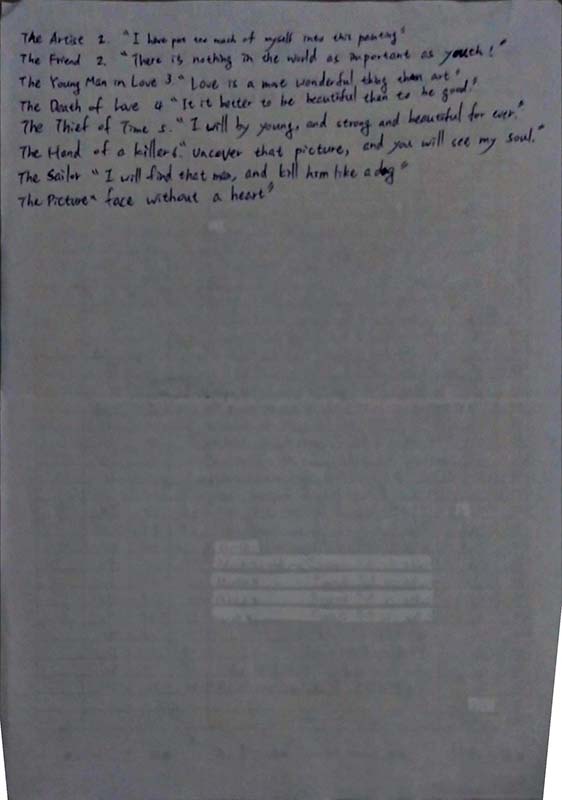 The Artist 2. "I have put too much of myself into this painting"
The Friend 2. "There is nothing in the world as important as youth!"
The Young Man in Love 3. "Love is a more wonderful thing than art"
The Death of Love 4 "It is better to be beautiful than to be good."
The Thief of Time 5. "I will by young, and strong and beautiful for ever."
The Hand of a killer 6." Uncover that picture, and you will see my soul."
The Sailor "I will find that man, and kill him like a dog"
The Picture " face without a heart"